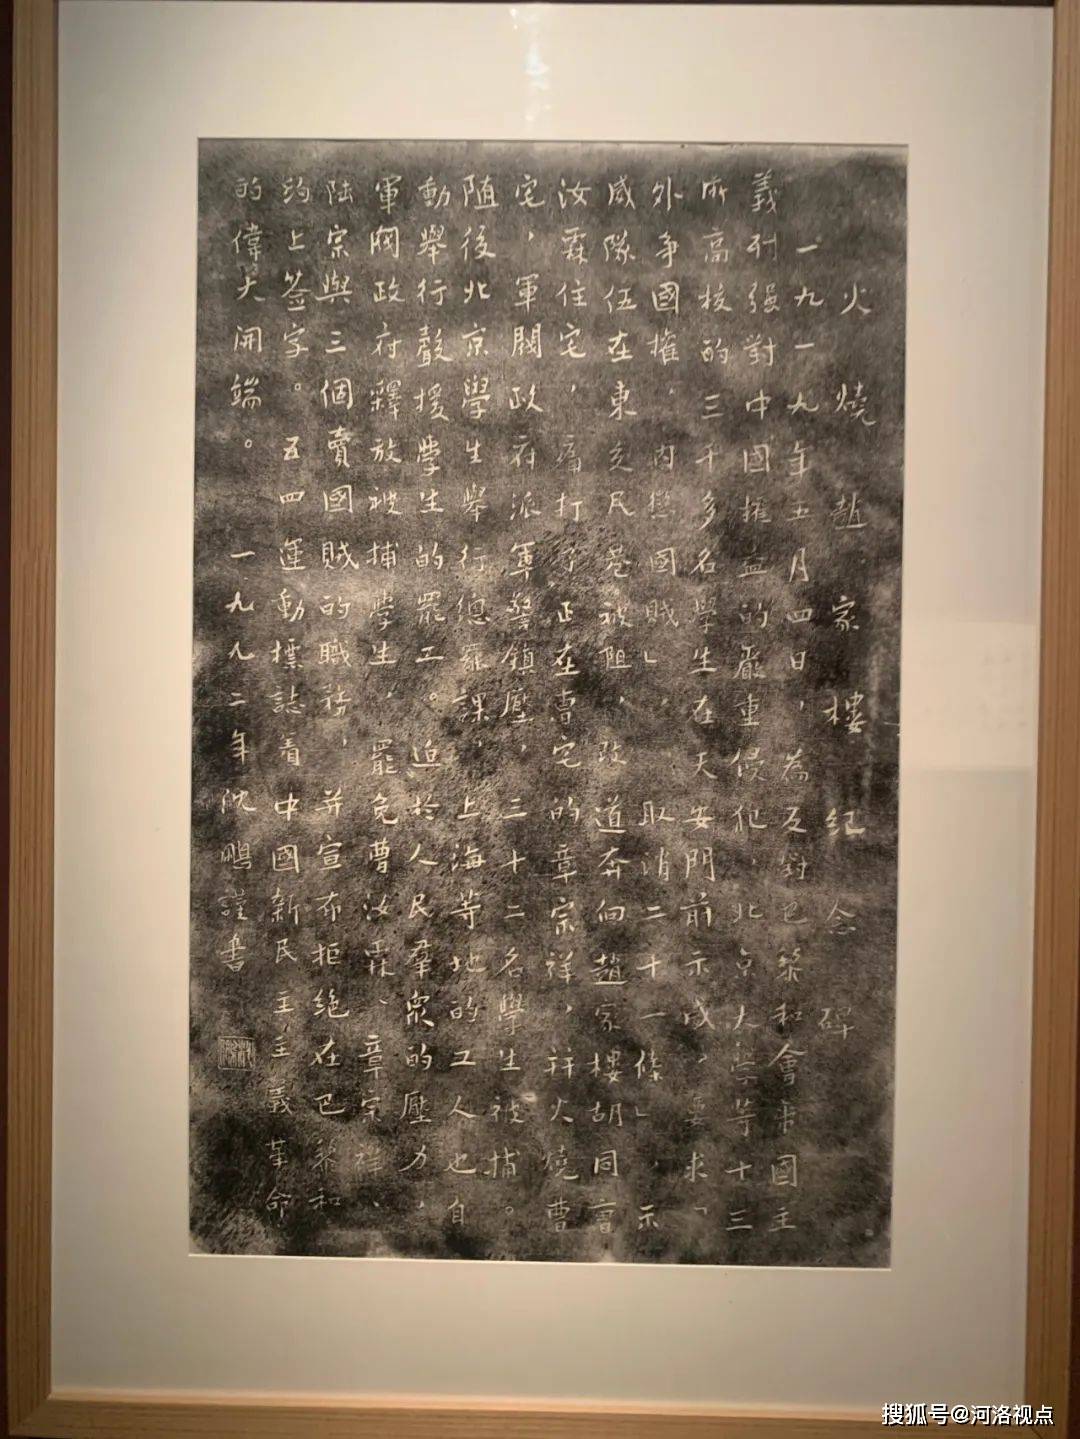 火燒趙家樓紀念碑
一九一九年五月四日，為反對巴黎和會帝國主
義列强對中國權益的嚴重侵犯，北京大學等十三
所高校的三千多名學生在天安門前示威，要求「
外争國權，内懲國賊」，取消二十一條」，示
威隊伍在東交民巷被阻，改道奔向趙家樓胡同曹
汝霖住宅，痛打了正在曹宅的章宗祥，并火燒曹
宅，軍閥政府派軍警鎮壓，三十二名學生被捕。
随後北京學生舉行總罷課，上海等地的工人也自
動舉行聲援學生的罷工。迫於人民羣衆的壓力，
軍閥政府釋放被捕學生，罷免曹汝霖、章宗祥、
陆宗與三個賣國賊的職務，并宣布拒绝在巴黎和
约上簽字。五四運動標誌着中國新民主主義革命
的偉大開端。一九九二年沈鵬謹書
搜狐号@河洛视点